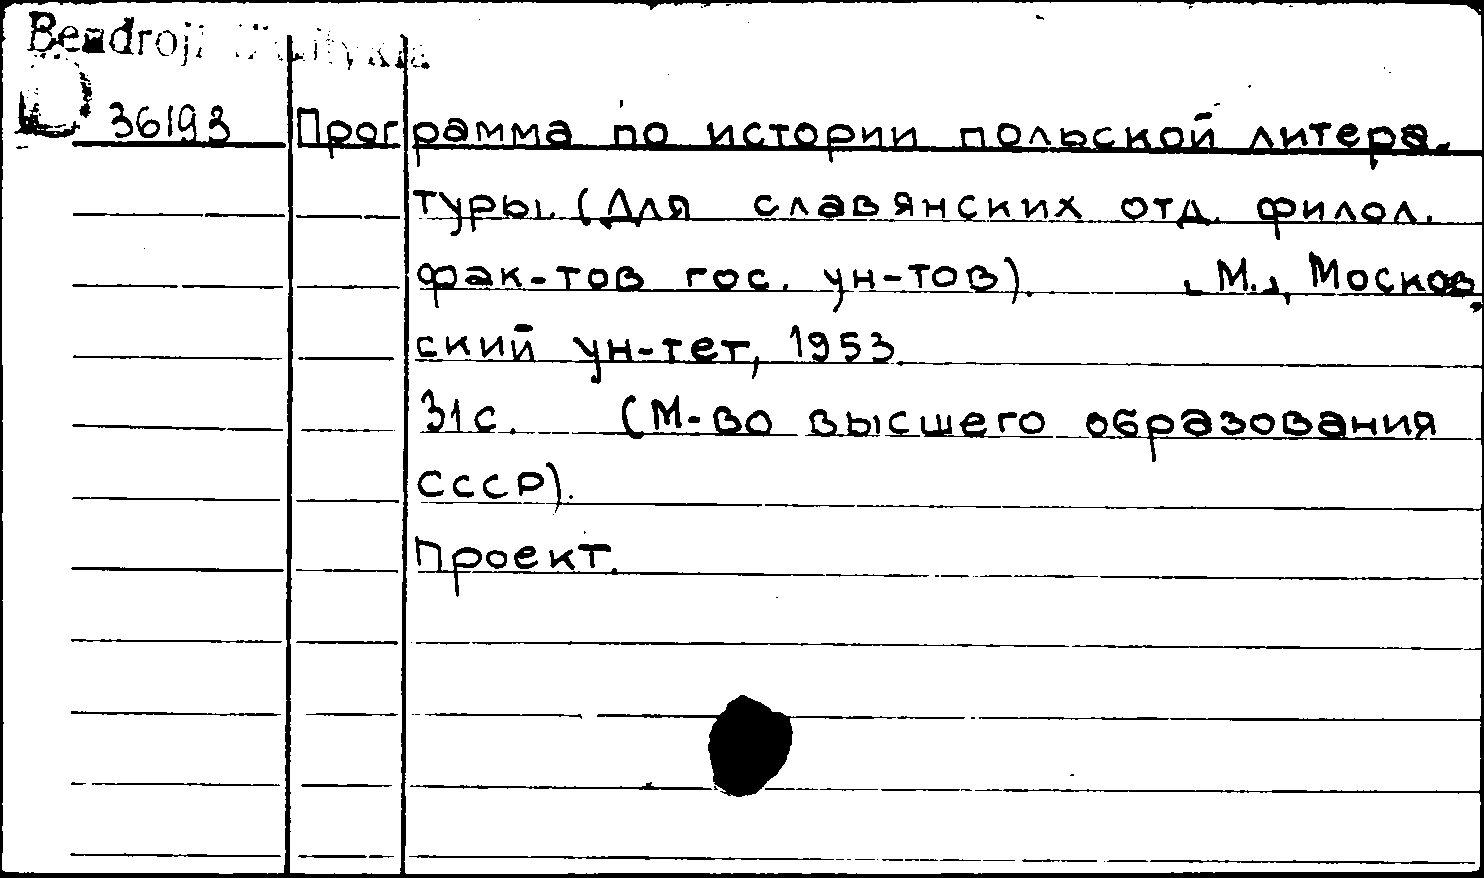 Bendroji
D 36193 Программа по истории польской литера-
туры. (Для славянских отд. филол.
фак-тов гос. ун-тов). [М.], Москов
ский ун-тет, 1953.
31с. (М-во высшего образования
СССР).
Проект.